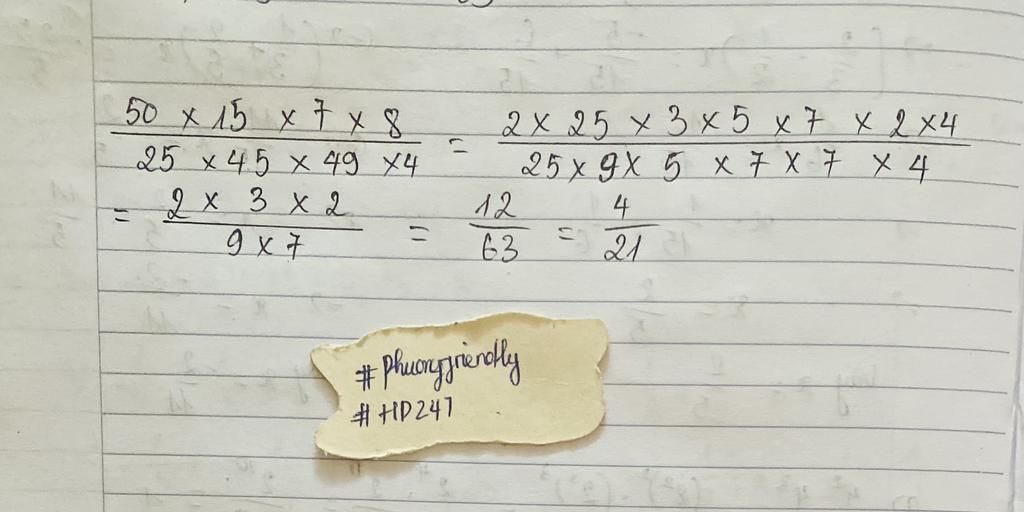 50 × 15 × 7 × 8 / 25 × 45 × 49 × 4 = 2 × 25 × 3 × 5 × 7 × 2 × 4 / 25 × 9 × 5 × 7 × 7 × 4
= 2 × 3 × 2 / 9 × 7 = 12 / 63 = 4 / 21
#phuongfriendly
#HD247